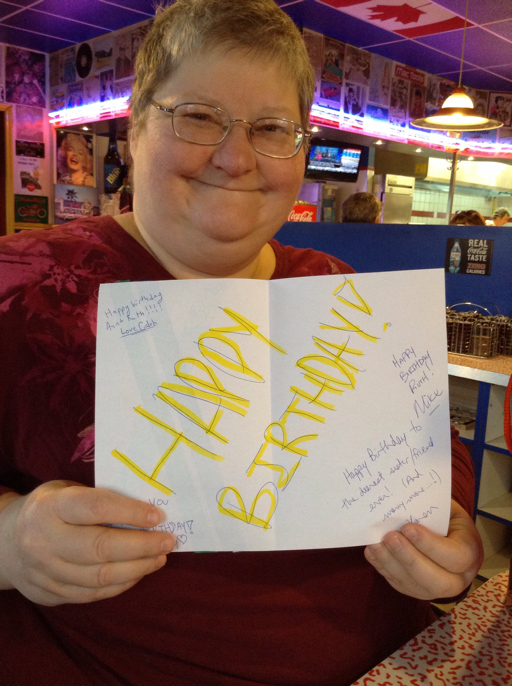 Happy birthday
Aunt Ruth!!!!
Love Caleb
HAPPY
BIRTHDAY!
HAPPY
BIRTHDAY
RUTH!
Mike
Happy Birthday to
the dearest sister/friend
ever! (And
many more...!)
YOU
BIRTHDAY!
XO
Coca-Cola
REAL
Coca-Cola
TASTE
ZERO
CALORIES